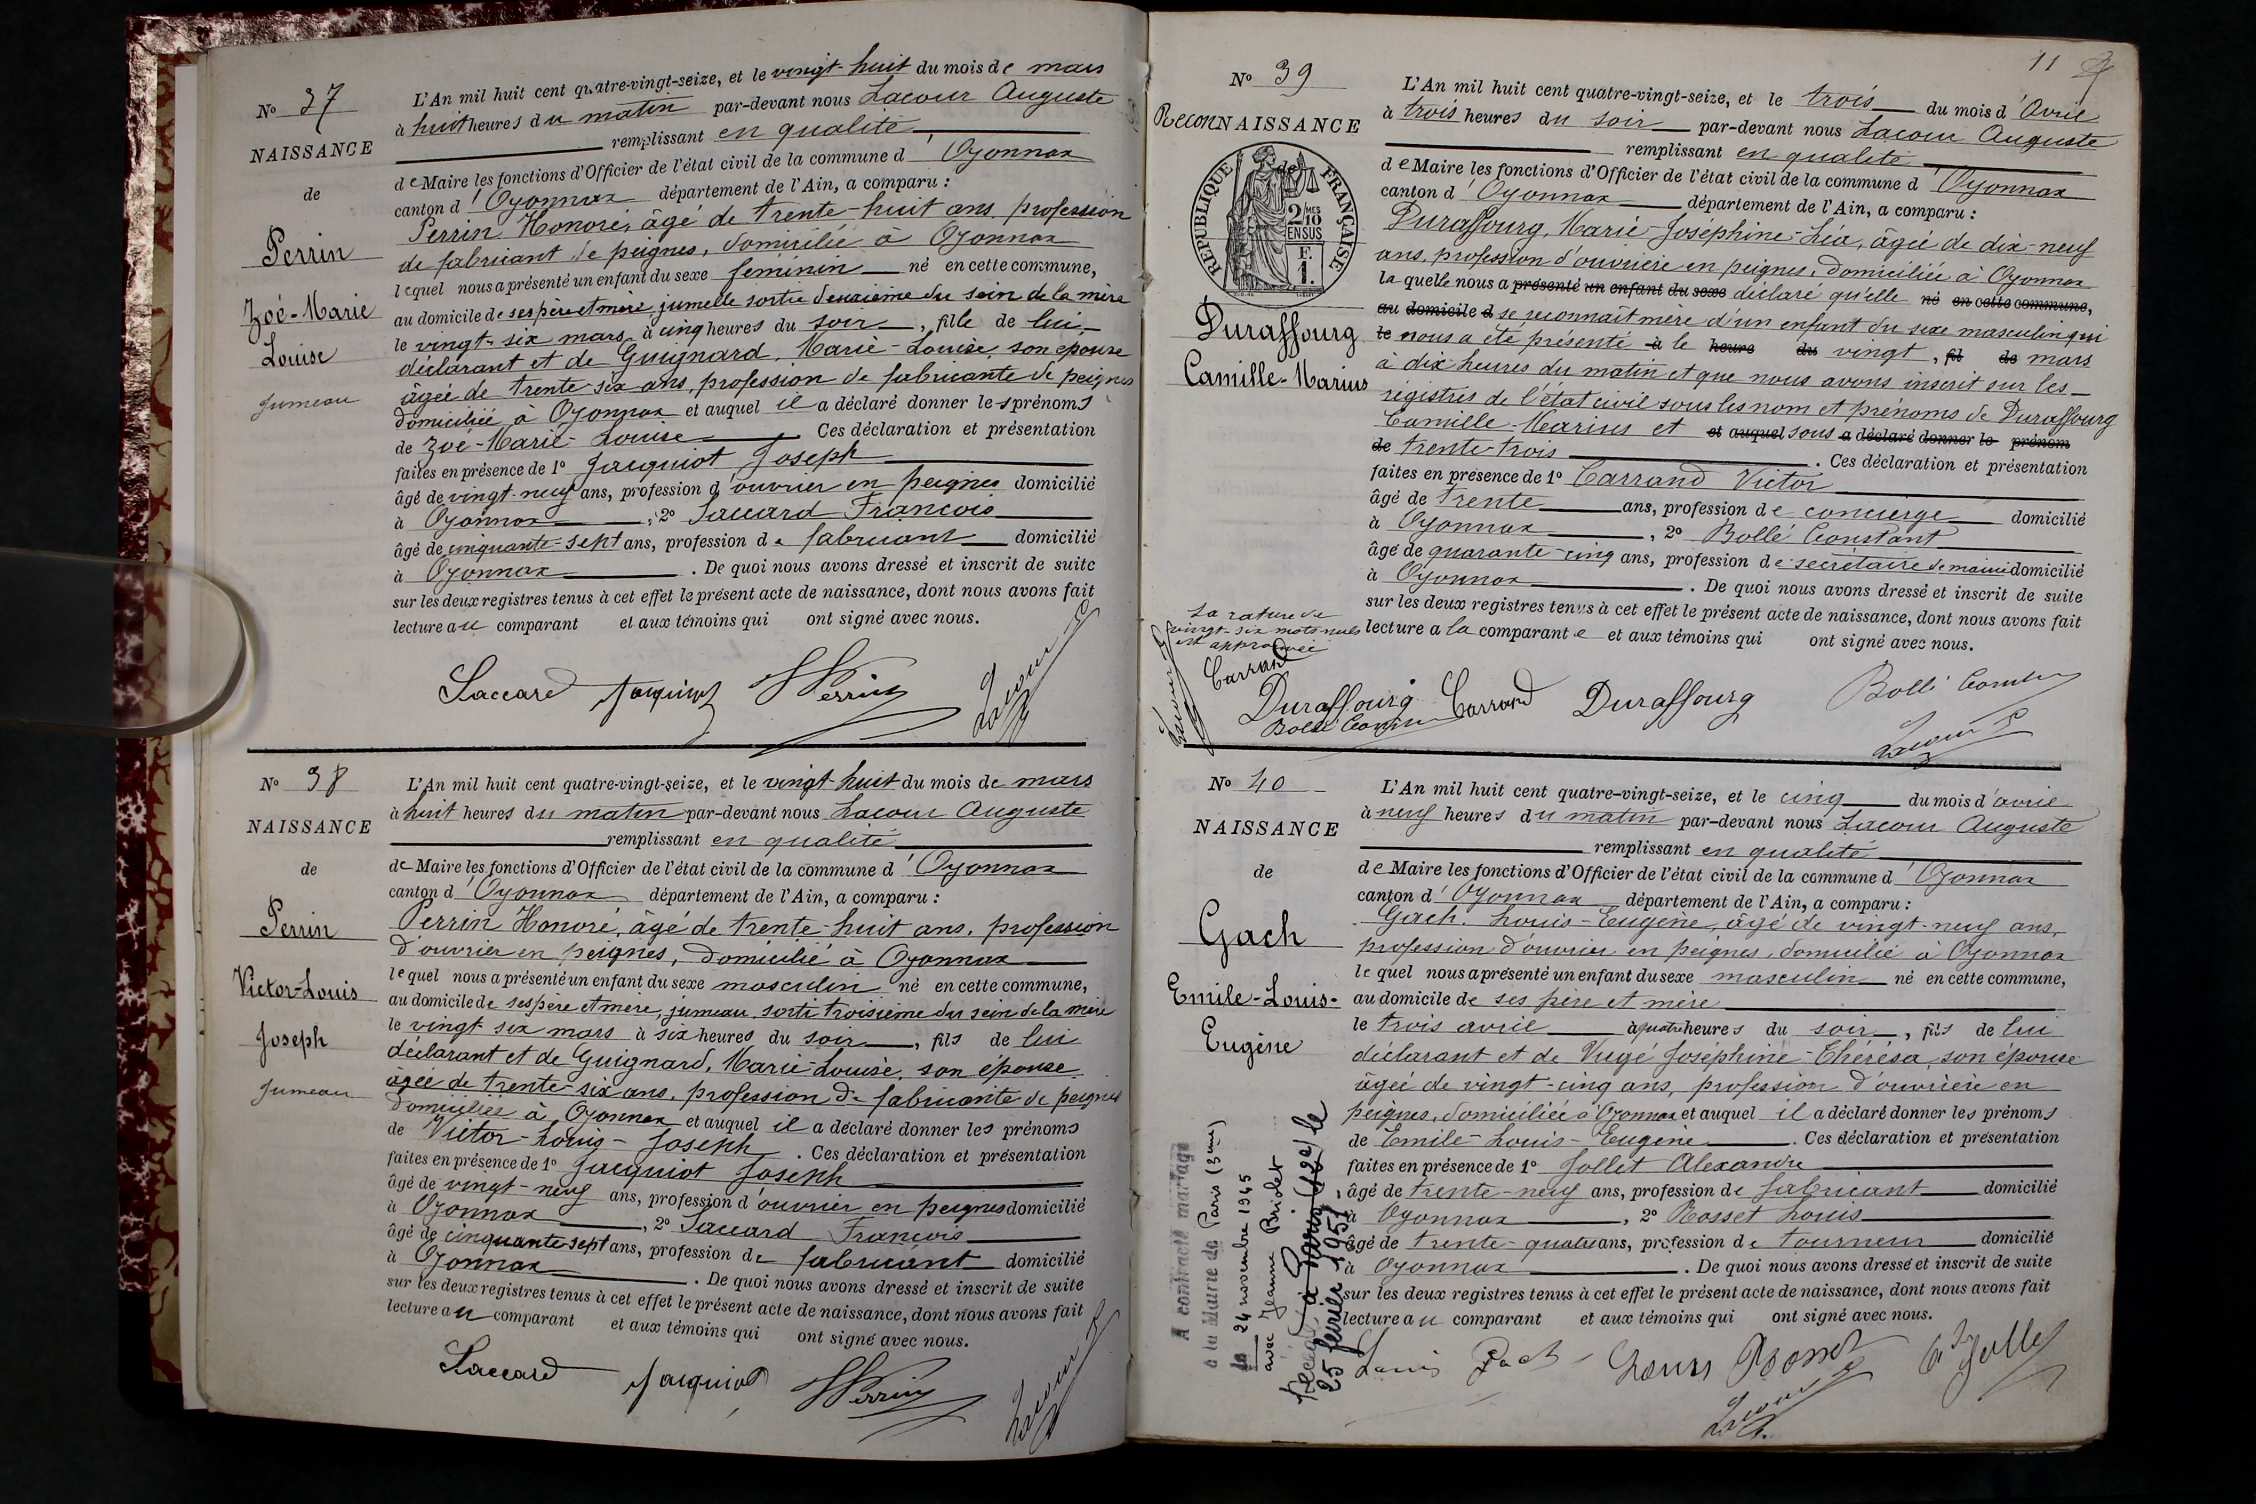 No 37
NAISSANCE
de
Perrin
Zoé-Marie
Louise
Jumeau
L'An mil huit cent quatre-vingt-seize, et le vingt-huit du mois de mars
à huit heures du matin par-devant nous Lacour Auguste
remplissant en qualité
de Maire les fonctions d'Officier de l'état civil de la commune d'Oyonnax
canton d'Oyonnax département de l'Ain, a comparu :
Perrin Honoré, âgé de trente-huit ans profession
de fabricant de peignes, domicilié à Oyonnax
lequel nous a présenté un enfant du sexe féminin né en cette commune,
au domicile de ses père et mère, jumelle sortie deuxième du sein de la mère
le vingt-six mars à cinq heures du soir, fille de lui
déclarant et de Guignard, Marie-Louise, son épouse
âgée de trente six ans, profession de fabricante de peignes
domiciliée à Oyonnax et auquel il a déclaré donner les prénoms
de Zoé-Marie-Louise Ces déclaration et présentation
faites en présence de 1o Jacquiot Joseph
âgé de vingt-neuf ans, profession d'ouvrier en peignes domicilié
à Oyonnax, 2o Saccard François
âgé de cinquante-sept ans, profession de fabricant domicilié
à Oyonnax. De quoi nous avons dressé et inscrit de suite
sur les deux registres tenus à cet effet le présent acte de naissance, dont nous avons fait
lecture au comparant et aux témoins qui ont signé avec nous.
Saccard Jacquiot HPerrin Lacour
No 38
NAISSANCE
de
Perrin
Victor-Louis
Joseph
Jumeau
L'An mil huit cent quatre-vingt-seize, et le vingt-huit du mois de mars
à huit heures du matin par-devant nous Lacour Auguste
remplissant en qualité
de Maire les fonctions d'Officier de l'état civil de la commune d'Oyonnax
canton d'Oyonnax département de l'Ain, a comparu :
Perrin Honoré, âgé de trente-huit ans, profession
d'ouvrier en peignes, domicilié à Oyonnax
lequel nous a présenté un enfant du sexe masculin né en cette commune,
au domicile de ses père et mère, jumeau sorti troisième du sein de la mère
le vingt-six mars à six heures du soir, fils de lui
déclarant et de Guignard, Marie-Louise, son épouse
âgée de trente-six ans, profession de fabricante de peignes
domiciliée à Oyonnax et auquel il a déclaré donner les prénoms
de Victor-Louis-Joseph. Ces déclaration et présentation
faites en présence de 1o Jacquiot Joseph
âgé de vingt-neuf ans, profession d'ouvrier en peignes domicilié
à Oyonnax, 2o Saccard François
âgé de cinquante-sept ans, profession de fabricant domicilié
à Oyonnax. De quoi nous avons dressé et inscrit de suite
sur les deux registres tenus à cet effet le présent acte de naissance, dont nous avons fait
lecture au comparant et aux témoins qui ont signé avec nous.
Saccard Jacquiot HPerrin Lacour
11
No 39
ReconNAISSANCE
de
RÉPUBLIQUE FRANÇAISE
2/10 MES
EN SUS
F.
1.
Duraffourg
Camille-Marius
L'An mil huit cent quatre-vingt-seize, et le trois du mois d'Avril
à trois heures du soir par-devant nous Lacour Auguste
remplissant en qualité
de Maire les fonctions d'Officier de l'état civil de la commune d'Oyonnax
canton d'Oyonnax département de l'Ain, a comparu :
Duraffourg, Marie-Joséphine-Léa, âgée de dix-neuf
ans, profession d'ouvrière en peignes, domiciliée à Oyonnax
la quelle nous a présenté un enfant du sexe déclaré qu'elle né en cette commune,
au domicile d se reconnait mère d'un enfant du sexe masculin qui
le nous a été présenté à le heure du vingt, fil de mars
à dix heures du matin et que nous avons inscrit sur les
registres de l'état civil sous les nom et prénoms de Duraffourg
Camille-Marius et et auquel sous a déclaré donner le prénom
de trente-trois. Ces déclaration et présentation
faites en présence de 1o Carrand Victor
âgé de trente ans, profession de concierge domicilié
à Oyonnax, 2o Bollé Constant
âgé de quarante-cinq ans, profession de secrétaire de mairie domicilié
à Oyonnax. De quoi nous avons dressé et inscrit de suite
sur les deux registres tenus à cet effet le présent acte de naissance, dont nous avons fait
lecture a la comparante et aux témoins qui ont signé avec nous.
La rature de
vingt-six mots nuls
est approuvée
Carrand
Lacour
Duraffourg Carrand Duraffourg Bollé Constant
Bollé Constant
Lacour
No 40
NAISSANCE
de
Gach
Emile-Louis-
Eugène
L'An mil huit cent quatre-vingt-seize, et le cinq du mois d'avril
à neuf heures du matin par-devant nous Lacour Auguste
remplissant en qualité
de Maire les fonctions d'Officier de l'état civil de la commune d'Oyonnax
canton d'Oyonnax département de l'Ain, a comparu :
Gach, Louis-Eugène, âgé de vingt-neuf ans,
profession d'ouvrier en peignes, domicilié à Oyonnax
lequel nous a présenté un enfant du sexe masculin né en cette commune,
au domicile de ses père et mère
le trois avril à quatre heures du soir, fils de lui
déclarant et de Vugé Joséphine-Thérésa, son épouse
âgée de vingt-cinq ans, profession d'ouvrière en
peignes, domiciliée à Oyonnax et auquel il a déclaré donner les prénoms
de Emile-Louis-Eugène. Ces déclaration et présentation
faites en présence de 1o Jollet Alexandre
âgé de trente-neuf ans, profession de fabricant domicilié
à Oyonnax, 2o Rosset Louis
âgé de trente-quatre ans, profession de tourneur domicilié
à Oyonnax. De quoi nous avons dressé et inscrit de suite
sur les deux registres tenus à cet effet le présent acte de naissance, dont nous avons fait
lecture au comparant et aux témoins qui ont signé avec nous.
A contracté mariage
à la Mairie de Paris (3eme)
le 24 novembre 1945
avec Jeanne Briolet
Décédé à Paris (12e) le
25 février 1951
Louis Gach Louis Rosset Jollet
Lacour